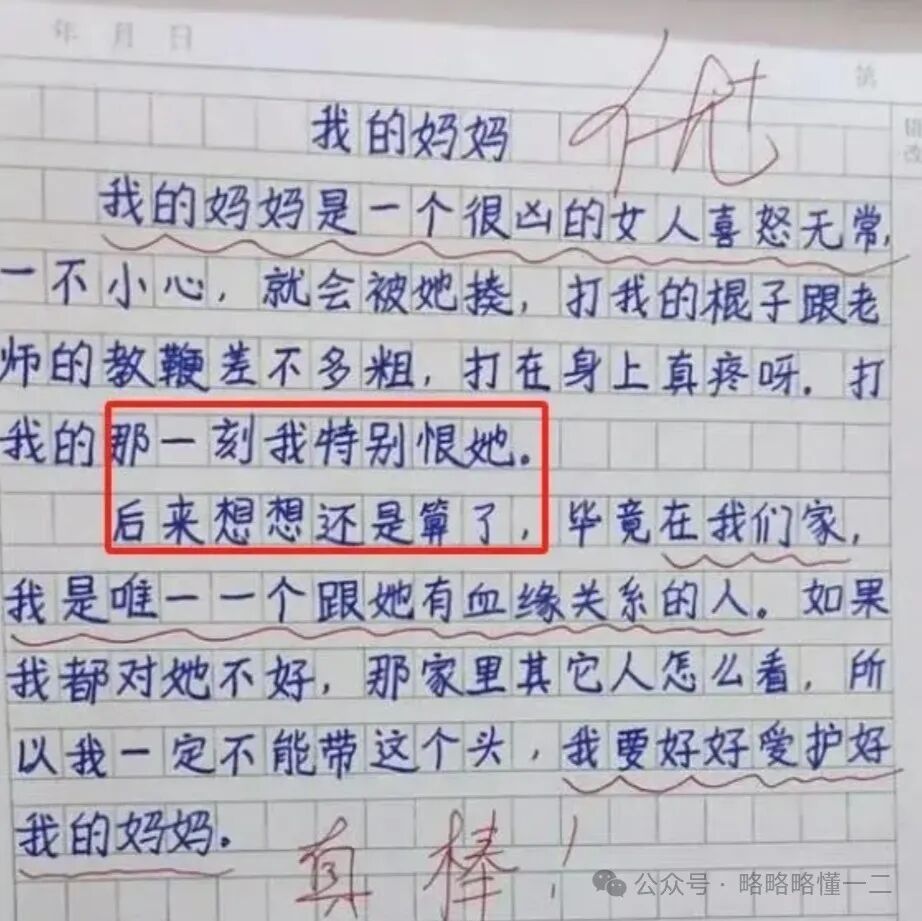 年 月 日
第
我的妈妈
优
我的妈妈是一个很凶的女人喜怒无常,
一不小心,就会被她揍,打我的棍子跟老
师的教鞭差不多粗,打在身上真疼呀.打
我的那一刻我特别恨她。
后来想想还是算了,毕竟在我们家,
我是唯一一个跟她有血缘关系的人。如果
我都对她不好,那家里其它人怎么看,所
以我一定不能带这个头,我要好好爱护好
我的妈妈。
真棒!
公众号·略略略懂一二